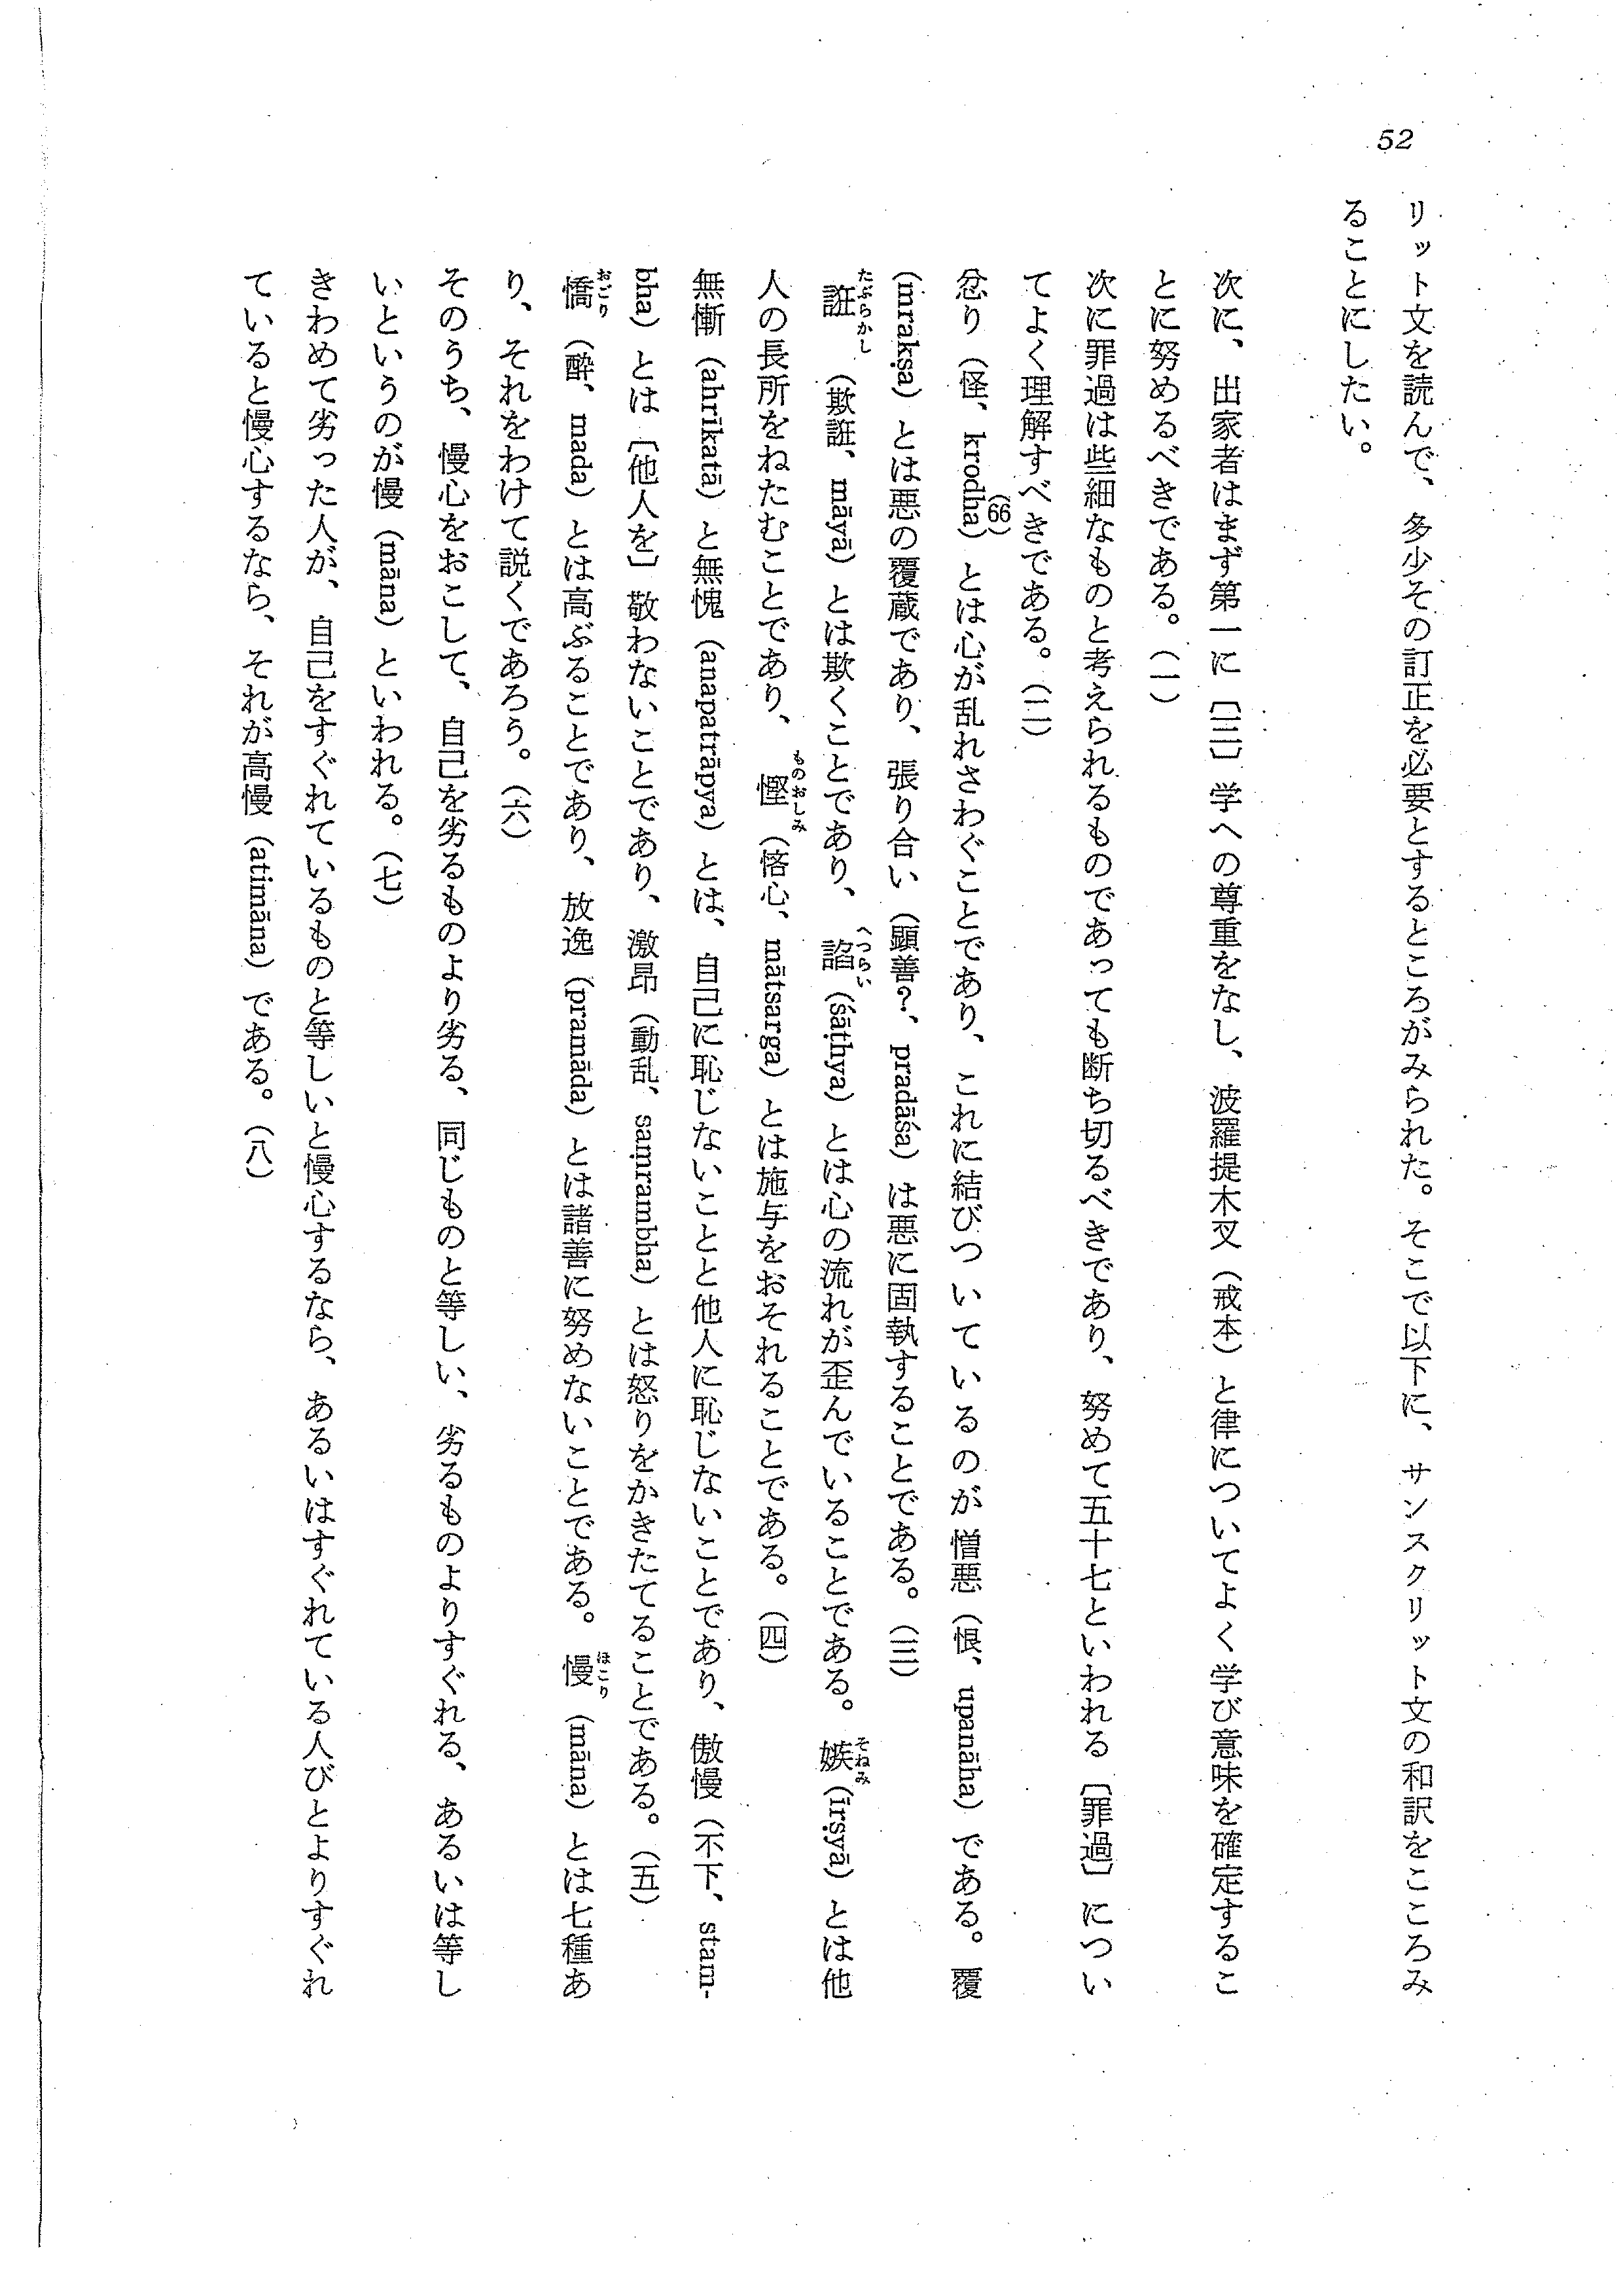 52
リット文を読んで、多少その訂正を必要とするところがみられた。そこで以下に、サンスクリット文の和訳をこころみ
ることにしたい。
次に、出家者はまず第一に〔三〕学への尊重をなし、波羅提木叉（戒本）と律についてよく学び意味を確定するこ
とに努めるべきである。（一）
次に罪過は些細なものと考えられるものであっても断ち切るべきであり、努めて五十七といわれる〔罪過〕につい
てよく理解すべきである。（二）
忿り（怪、krodha）(66)とは心が乱れさわぐことであり、これに結びついているのが憎悪（恨、upanāha）である。覆
（mrakṣa）とは悪の覆蔵であり、張り合い（顕善？、pradāśa）は悪に固執することである。（三）
誑たぶらかし（欺誑、māyā）とは欺くことであり、諂へつらい（śāṭhya）とは心の流れが歪んでいることである。嫉そねみ（īrṣyā）とは他
人の長所をねたむことであり、慳ものおしみ（悋心、mātsarga）とは施与をおそれることである。（四）
無慚（ahrīkatā）と無愧（anapatrāpya）とは、自己に恥じないことと他人に恥じないことであり、傲慢（不下、stam-
bha）とは〔他人を〕敬わないことであり、激昂（動乱、saṃrambha）とは怒りをかきたてることである。（五）
憍おごり（酔、mada）とは高ぶることであり、放逸（pramāda）とは諸善に努めないことである。慢ほこり（māna）とは七種あ
り、それをわけて説くであろう。（六）
そのうち、慢心をおこして、自己を劣るものより劣る、同じものと等しい、劣るものよりすぐれる、あるいは等し
いというのが慢（māna）といわれる。（七）
きわめて劣った人が、自己をすぐれているものと等しいと慢心するなら、あるいはすぐれている人びとよりすぐれ
ていると慢心するなら、それが高慢（atimāna）である。（八）